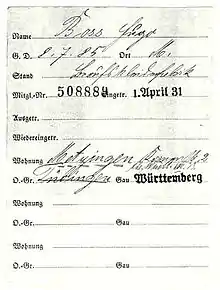 Name Boss Hugo
G. D. 8.7.85 Ort M.
Stand
Mitgl.-Nr. 508889 Eingetr. 1. April 31
Ausgetr.
Wiedereingetr.
Wohnung Metzingen
O.-Gr. Gau Württemberg
Wohnung
O.-Gr. Gau
Wohnung
O.-Gr. Gau